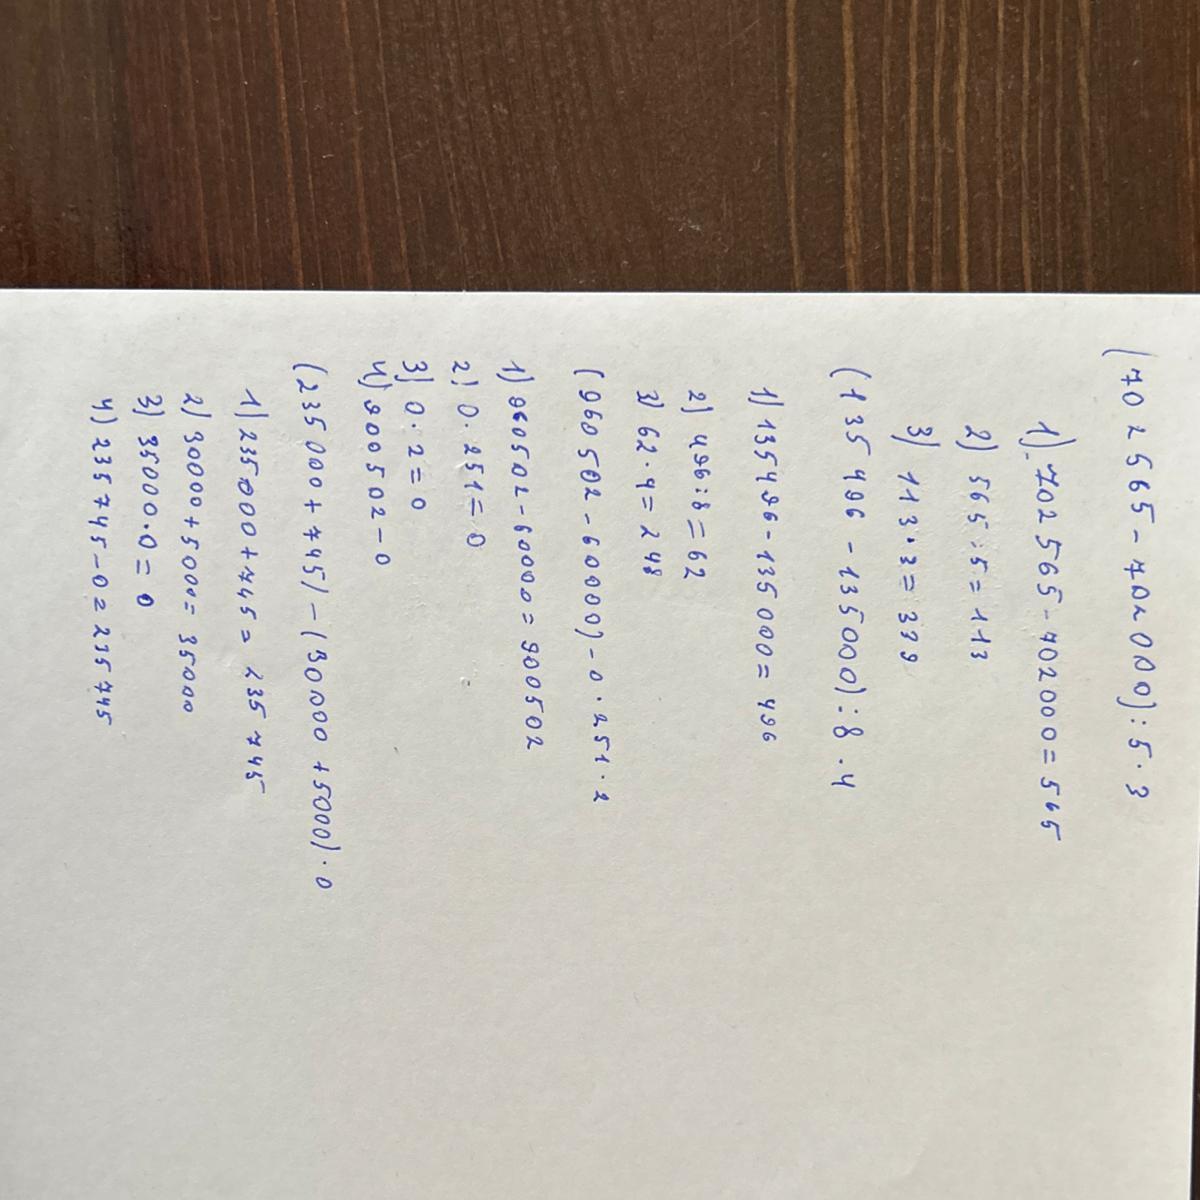 (702565-702000):5·3
1) 702565-702000=565
2) 565:5=113
3) 113·3=339
(135496-135000):8·4
1) 135496-135000=496
2) 496:8=62
3) 62·4=248
(960502-60000)-0·251·2
1) 960502-60000=900502
2) 0·251=0
3) 0·2=0
4) 900502-0
(235000+745)-(30000+5000)·0
1) 235000+745=235745
2) 30000+5000=35000
3) 35000·0=0
4) 235745-0=235745